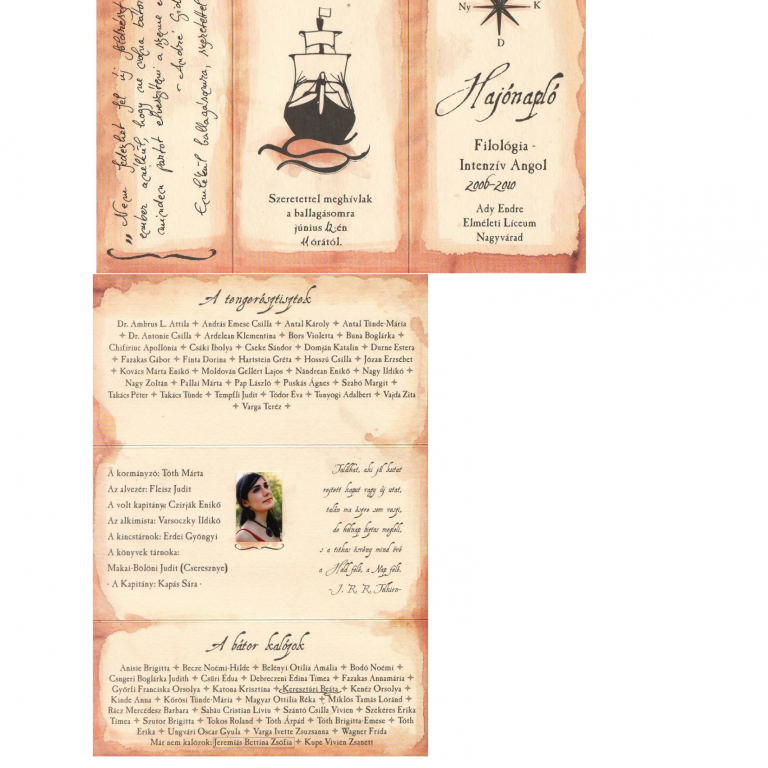 „Nem fedezhet fel új földrészt
ember anélkül, hogy ne volna bátor
minden partot elveszíteni a szeme e
- André Gid
Emlékül ballagásomra, szeretettel
Szeretettel meghívlak
a ballagásomra
június 12-én
11 órától.
Ny K
D
Hajónapló
Filológia -
Intenzív Angol
2006-2010
Ady Endre
Elméleti Líceum
Nagyvárad
A tengerésztisztek
Dr. Ambrus L. Attila + András Emese Csilla + Antal Károly + Antal Tünde-Mária
+ Dr. Antonie Csilla + Ardelean Klementina + Bors Violetta + Buna Boglárka +
Chifiriuc Apollónia + Csáki Ibolya + Cseke Sándor + Domján Katalin + Durne Estera
+ Fazakas Gábor + Finta Dorina + Hartstein Gréta + Hosszú Csilla + Józan Erzsébet
+ Kovács Márta Enikő + Moldován Gellért Lajos + Nándrean Enikő + Nagy Ildikó +
Nagy Zoltán + Pallai Márta + Pap László + Puskás Ágnes + Szabó Margit +
Takács Péter + Takács Tünde + Tempfli Judit + Tódor Éva + Tunyogi Adalbert + Vajda Zita
+ Varga Teréz +
A kormányzó: Tóth Márta
Az alvezér: Fleisz Judit
A volt kapitány: Czirják Enikő
Az alkimista: Varsoczky Ildikó
A kincstárnok: Erdei Gyöngyi
A könyvek tárnoka:
Makai-Bölöni Judit (Cseresznye)
- A Kapitány: Kapás Sára -
Találhat, aki jól kutat
rejtett kaput vagy új utat,
talán ma észre sem veszi,
de holnap biztos megleli,
s a titkas ösvény mind övé
a Hold felé, a Nap felé.
-J. R. R. Tolkien-
A bátor kalózok
Anisie Brigitta + Becze Noémi-Hilde + Belényi Otília Amália + Bodó Noémi +
Csngeri Boglárka Judith + Csűri Édua + Debreczeni Edina Tímea + Fazakas Annamária +
Győrfi Franciska Orsolya + Katona Krisztina + Keresztúri Beáta + Kenéz Orsolya +
Kinde Anna + Kőrösi Tünde-Mária + Magyar Ottilia Réka + Miklós Tamás Lóránd +
Rácz Mercédesz Barbara + Sabău Cristian Liviu + Szántó Csilla Vivien + Szekeres Erika
Tímea + Szutor Brigitta + Tokos Roland + Tóth Árpád + Tóth Brigitta-Emese + Tóth
Erika + Ungvári Oscar Gyula + Varga Ivette Zsuzsanna + Wagner Frida
Már nem kalózok: Jeremiás Bettina Zsófia + Kupe Vivien Zsanett